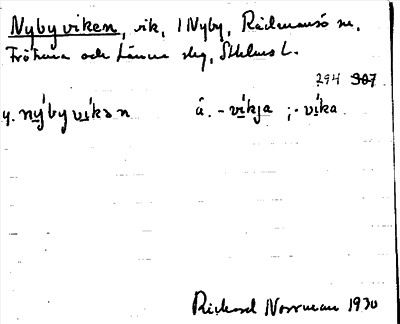 Nybyviken, vik, I Nyby, Rådmansö sn,
Frötuna och Länna slg, Sthlms L.
294 307
y. nýbyvíkən å. -víkja ; -víka
Rickard Norrman 1930